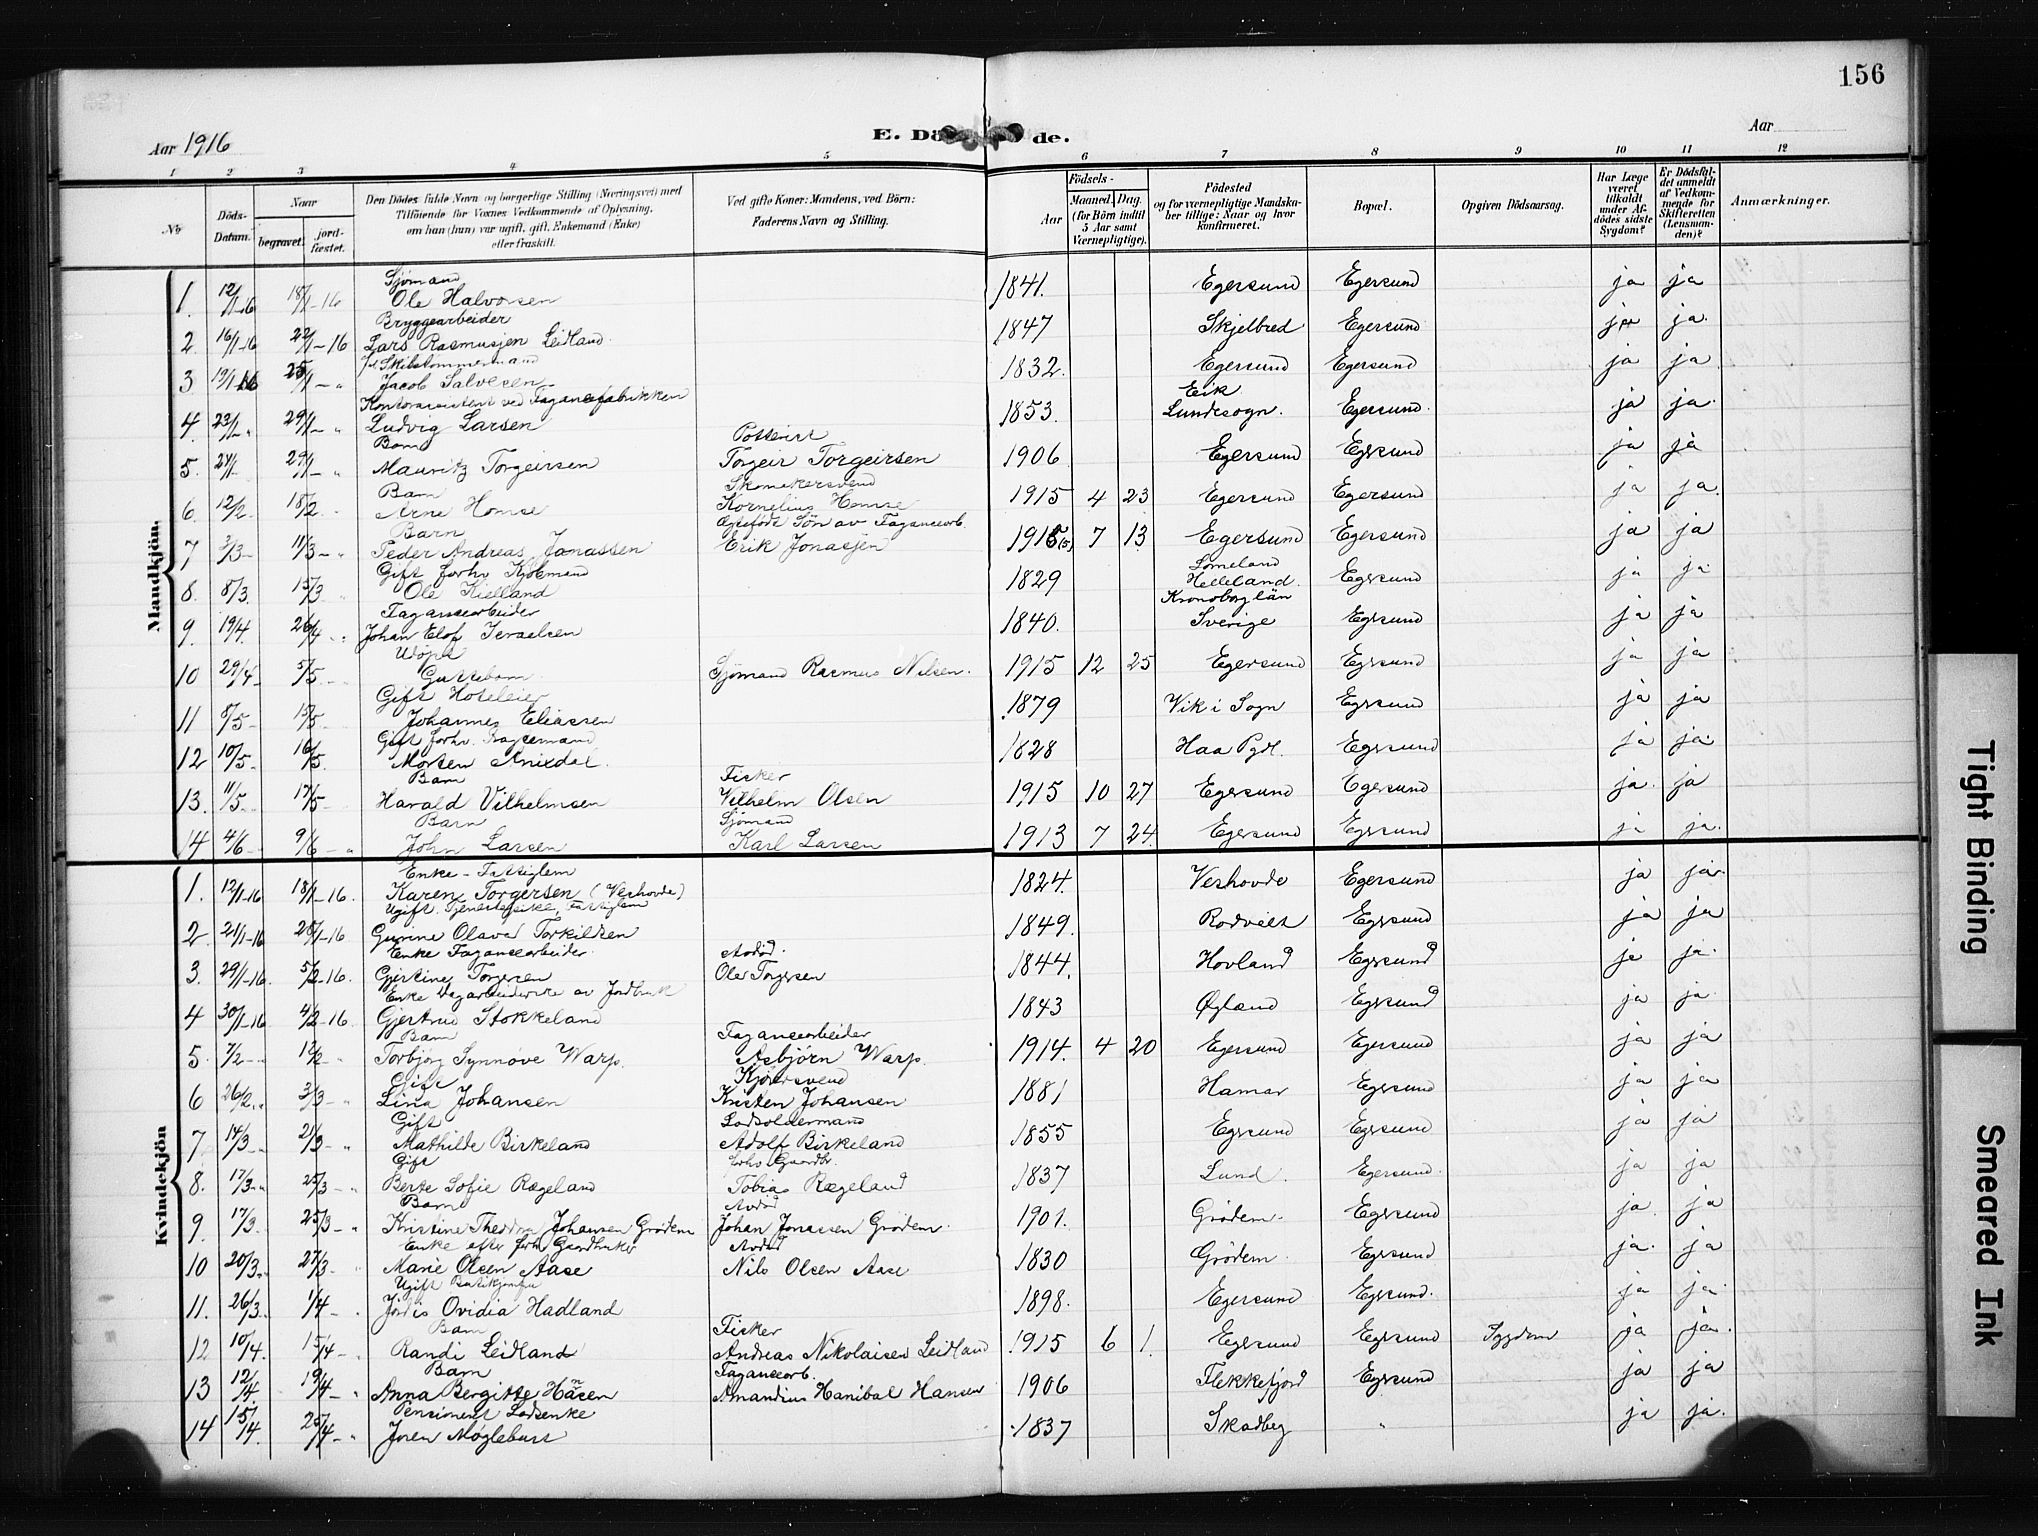 156
Aar 1916
E. Dö de.
Aar
1 2 3 4 5 6 7 8 9 10 11 12
No
Döds-Datum.
Naar
begravet.
jordfæstet.
Den Dödes fulde Navn og borgerlige Stilling (Næringsvei) med
Tilföiende for Voxnes Vedkommende af Oplysning,
om han (hun) var ugift, gift, Enkemand (Enke)
eller fraskilt.
Ved gifte Koner: Mandens, ved Börn:
Faderens Navn og Stilling.
Födsels-
Aar
Maaned. Dag.
(for Börn indtil
5 Aar samt
Værnepligtige).
Födested
og for værnepligtige Mandskaber tillige: Naar og hvor
konfirmeret.
Bopæl.
Opgiven Dödsaarsag.
Har Læge
været
tilkaldt
under Afdödes sidste
Sygdom?
Er Dödsfaldet anmeldt
af Vedkommende for
Skifteretten
(Lensmanden)?
Anmærkninger.
Mandkjön.
Sjømand
1. 12/1-16 18/1-16 Ole Halvorsen 1841. Egersund Egersund ja ja
Bryggearbeider
2. 16/1-16 22/1-16 Lars Rasmusjen Leidland. 1847 Skjelbred Egersund ja ja.
Skibstømmermand
3 19/1-16 25/1-" Jacob Salvesen 1832. Egersund Egersund ja ja
Kontorassistent ved Fayancefabrikken Eik
4. 23/1-" 29/1-" Ludvig Larsen 1853. Lundesogn. Egersund. ja ja.
Barn
5. 24/1 29/1-" Mauritz Torgeirsen Torgeir Torgeirsen 1906 Egersund Egersund ja ja
Barn Skomakersvend
6. 12/2 18/2 Arne Homse Kornelius Homse 1915 4 23 Egersund Egersund ja ja.
Barn Egtefødt Søn av Fayancearb.
7 3/3- 11/3-" Peder Andreas Jonassen Erik Jonasjen 1915 (5) 7 13 Egersund Egersund ja ja
Gift forhv Kjøbmand
8. 8/3. 15/3 Ole Kielland 1829 Helleland. Egersund ja ja
Fayancearbeider Kronoborg län
9. 19/4. 26/4 Johan Elof Israelsen 1840. Sverige Egersund ja ja
Udøpt
10 29/4- 5/5- Guttebarn Sjømand Rasmus Nilsen. 1915 12 25 Egersund Egersund ja ja
Gift Hoteleier
11 8/5- 15/5 Johannes Eliassen 1879 Vik i Sogn Egersund ja ja
Gift forhv.
12 10/5- 16/5. Morten 1828 Haa Pgd. Egersund ja ja.
Barn Fisker
13. 11/5 17/5 Harald Vilhelmsen Vilhelm Olsen 1915 10 27 Egersund Egersund ja. ja
Barn Sjømand
14 4/6 9/6-" John Larsen Karl Larsen 1913 7 24. Egersund Egersund ja ja.
Kvindekjön
Enke - Fattiglem
1. 12/1-16 18/1-16. Karen Torgersen (Veshovde) 1824. Veshovde Egersund ja ja.
Ugift. Tjenestepike, Fattiglem
2. 21/1-16 25/1-16 Gurine Olava Torkildsen 1849. Rodvelt Egersund ja ja
Enke Fayancearbeider. Avdød.
3. 29/1-16. 5/2-16. Gjertine Torgersen Ole Torgersen 1844. Hovland Egersund ja ja.
4 30/1-16 4/2-16 Gjertrud Stokkeland 1843 Øgland Egersund ja ja.
Barn Fayancearbeider
5. 7/2 12/2 Torbjørg Synnøve Warp. Asbjørn Warp. 1914. 4 20 Egersund Egersund ja ja
Gift
6 26/2 3/3-" Lina Johansen Kristen Johansen 1881 Hamar Egersund ja ja
Gift Lodsoldermand
7. 14/3 21/3-" Mathilde Birkeland Adolf Birkeland 1855 Egersund Egersund ja ja
Gift forhv Gaardbr.
8. 17/3-" 25/3-" Berte Sofie Rægeland Tobias Rægeland 1837 Lund. Egersund. ja ja
Barn Avdød
9. 17/3. 25/3-" Kristine Theodora Johansen Grödem Johan Jonassen Grödem. 1901. Grödem. Egersund ja. ja
Enke efter forhv Gaardbruker Avdød
10 20/3-" 27/3 Marie Olsen Aase Nils Olsen Aase 1830 Grödem. Egersund ja. ja
Ugift Butikjomfru
11. 26/3. 1/4- Jördis Ovidia Hadland 1898. Egersund Egersund. ja ja.
Barn Fisker
12 10/4. 15/4- Randi Leidland Andreas Nikolaisen Leidland 1915 6 1. Egersund Egersund Sygdom ja ja.
Barn Fayancearb.
13 12/4 19/4-" Anna Bergitte Hansen Amandius Hanibal Hansen 1906 Flekkefjord Egersund ja ja
Pensioneret Lodsenke
14 15/4. 25/4-" Joren Møglebust 1837 Skadberg " ja ja.
Tight Binding
Smeared Ink